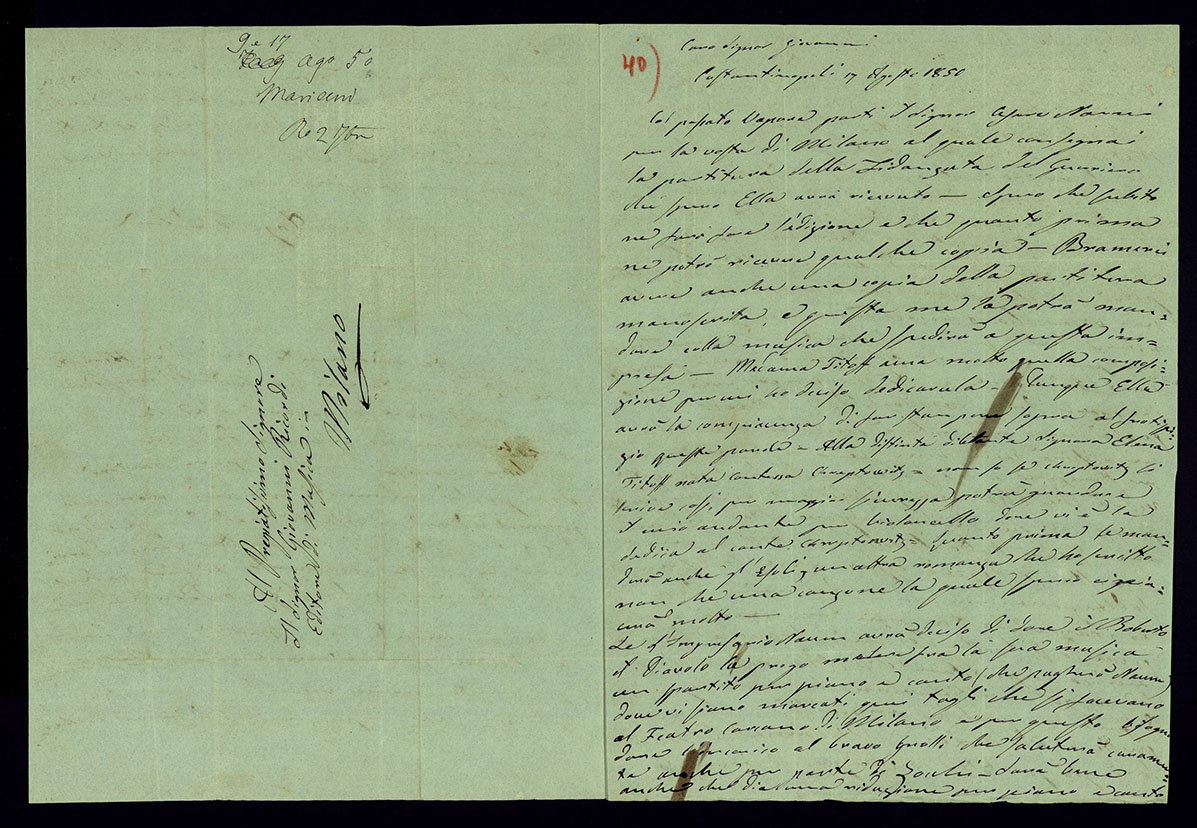 9 e 17
ago 50
Mariani
Al Pregiatissimo Signore
Il Signor Giovanni Ricordi
Editore di Musica in
Milano
40)
Caro Signor Giovanni
Costantinopoli 17 Agosto 1850
Col passato Vapore partì il Signor Cesare Nanni
per la volta di Milano al quale consegnai
la partitura della Fidanzata del Guerriero
che spero Ella avrà ricevuto – Spero che subito
ne farà fare l'edizione e che quanto prima
ne potrò ricevere qualche copia – Bramerei
avere anche una copia della partitura
manoscritta, e questa me la potrà man-
dare colla musica che spedirà a questa im-
presa – Madama Titoff ama molto quella composi-
zione per cui ho deciso dedicarcela – Dunque Ella
avrà la compiacenza di far stampare sopra al frontispi-
zio queste parole – Alla distinta dilettante Signora Elena
Titoff nata contessa Chreptowitz – non so se Chreptowitz si
scriva così, per maggior sicurezza potrà guardare
il mio andante per Violoncello dove vi è la
dedica al conte Chreptowitz – quanto prima le man-
derò anche gl'Esuli, un altra romanza che ho scritto
non che una canzone la quale spero
molto –
Se l'Impresario Naum avrà deciso di dare il Roberto
il Diavolo la prego mettere fra la sua musica
un spartito per piano e canto (che pagherà Naum)
dove vi siano marcati quei tagli che si facevano
al Teatro Carcano di Milano e per questo bisogna
dare incarico al bravo che saluterà carame-
te anche per parte di – sarà bene
anche che dia una riduzione per piano e canto